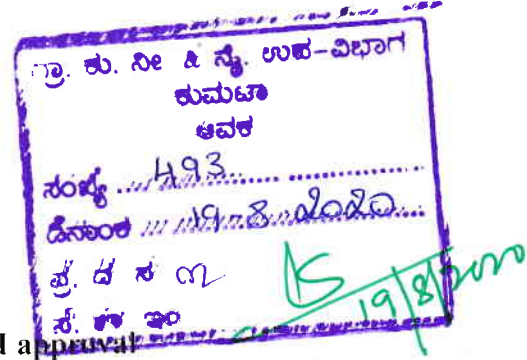 ಗ್ರಾ. ಕು. ನೀ & ನೈ. ಉಪ-ವಿಭಾಗ
ಕುಮಟಾ
ಆವಕ
ಸಂಖ್ಯೆ ....493....................
ದಿನಾಂಕ ....19-8-2020...
ಪ್ರ. ದ ಸ
ಸ. ಕಾ ಇಂ
19/8/2020
d approval